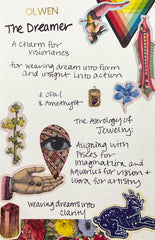 OLWEN
The Dreamer
A charm for
visionaries
for weaving dream into form
and insight into action
& Opal
& Amethyst
The Astrology of
Jewelry:
Aligning with
Pisces for
imagination, and
Aquarius for vision +
for artistry
Weaving dreams into
clarity